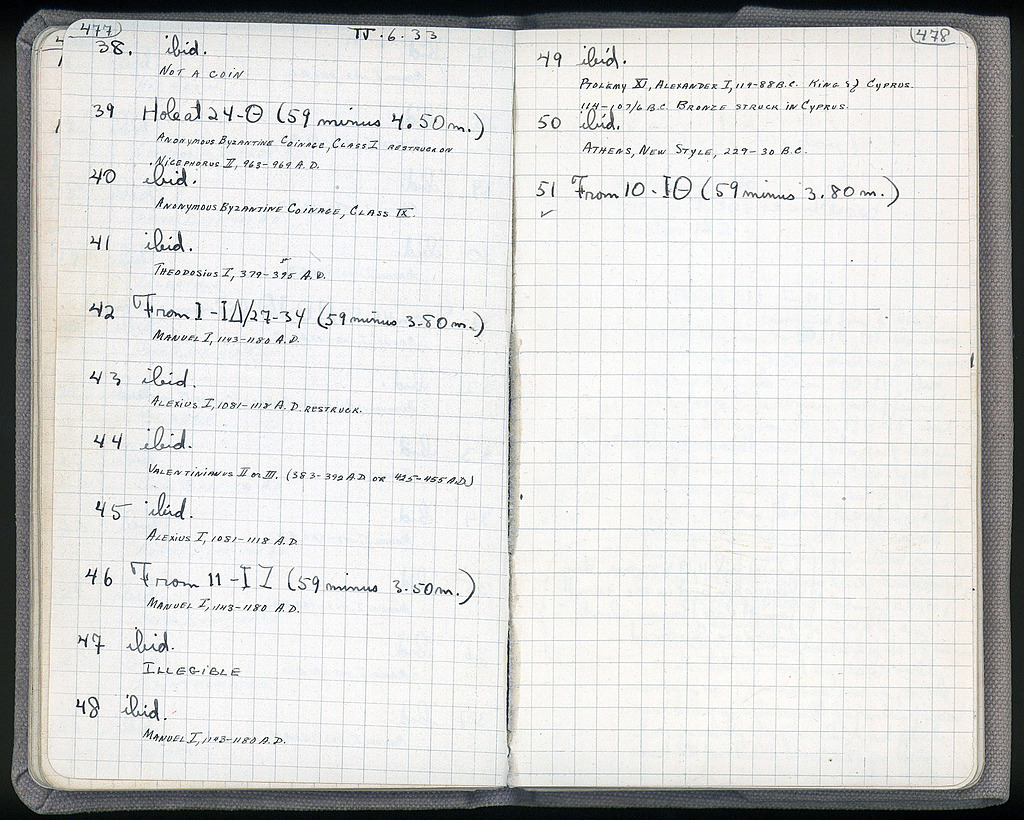 477
IV.6.33
38. ibid.
NOT A COIN
39 Hole at 24-Θ (59 minus 4.50m.)
ANONYMOUS BYZANTINE COINAGE, CLASS I RESTRUCK ON
NICEPHORUS II, 963-969 A.D.
40 ibid.
ANONYMOUS BYZANTINE COINAGE, CLASS IX.
41 ibid.
THEODOSIUS I, 379-395 A.D.
42 From I-ΙΔ/27-34 (59 minus 3.80m.)
MANUEL I, 1143-1180 A.D.
43 ibid.
ALEXIUS I, 1081-1118 A.D. RESTRUCK.
44 ibid.
VALENTINIANUS II OR III. (383-392 A.D OR 425-455 A.D.)
45 ibid.
ALEXIUS I, 1081-1118 A.D.
46 From 11-ΙΖ (59 minus 3.50m.)
MANUEL I, 1143-1180 A.D.
47 ibid.
ILLEGIBLE
48 ibid.
MANUEL I, 1143-1180 A.D.
478
49 ibid.
PTOLEMY XI, ALEXANDER I, 114-88 B.C. KING OF CYPRUS.
114-107/6 B.C BRONZE STRUCK IN CYPRUS.
50 ibid.
ATHENS, NEW STYLE, 229-30 B.C.
51 From 10-ΙΘ (59 minus 3.80m.)
✓